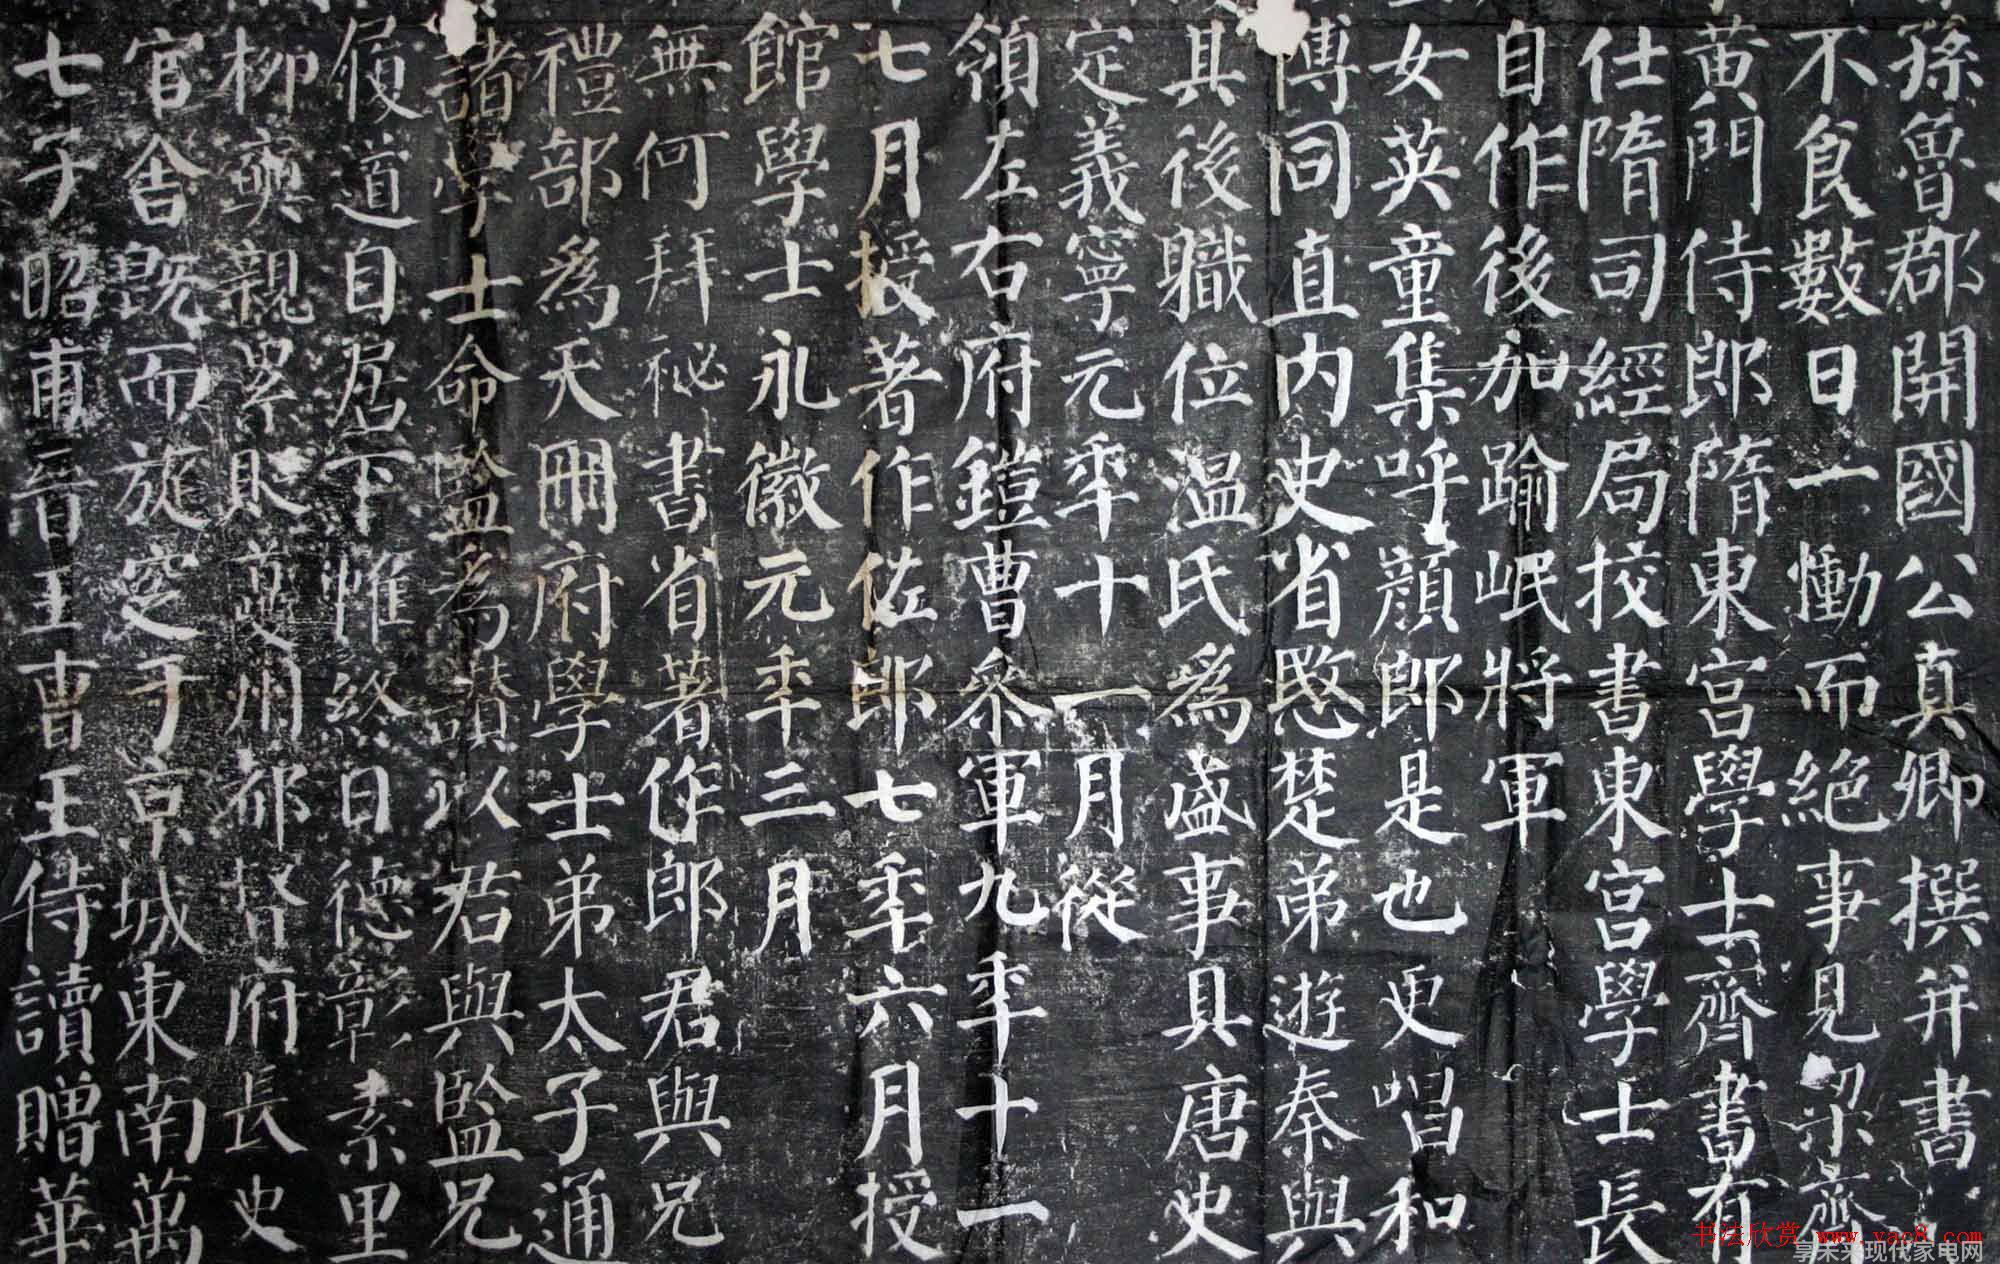 孫魯郡開國公真卿撰并書
不食數日一慟而絕事見梁齊
黃門侍郎隋東宮學士齊書有
仕隋司經局挍書東宮學士長
自作後加踰岷將軍
女英童集呼顏郎是也更唱和
博同直内史省愍楚弟遊秦與
具後職位温氏為盛事具唐史
定義寧元年十一月從
領左右府鎧曹參軍九年十一
七月授著作佐郎七年六月授
館學士永徽元年三月
無何拜祕書省著作郎君與兄
禮部為天冊府學士弟太子通
諸學士命監為讚以君與監兄
履道自居下帷終日德彰素里
柳奭親累貶夔州都督府長史
官舍既而旋窆于京城東南萬
七子昭甫晉王曹王侍讀贈華
书法欣赏 www.yac8.com
享未来现代家电网